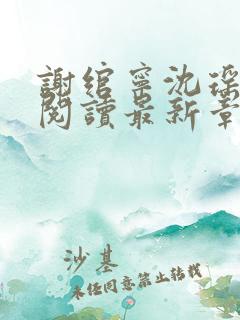 謝綰寧沈瑶
閱讀最新章
沙基
未经同意禁止转载